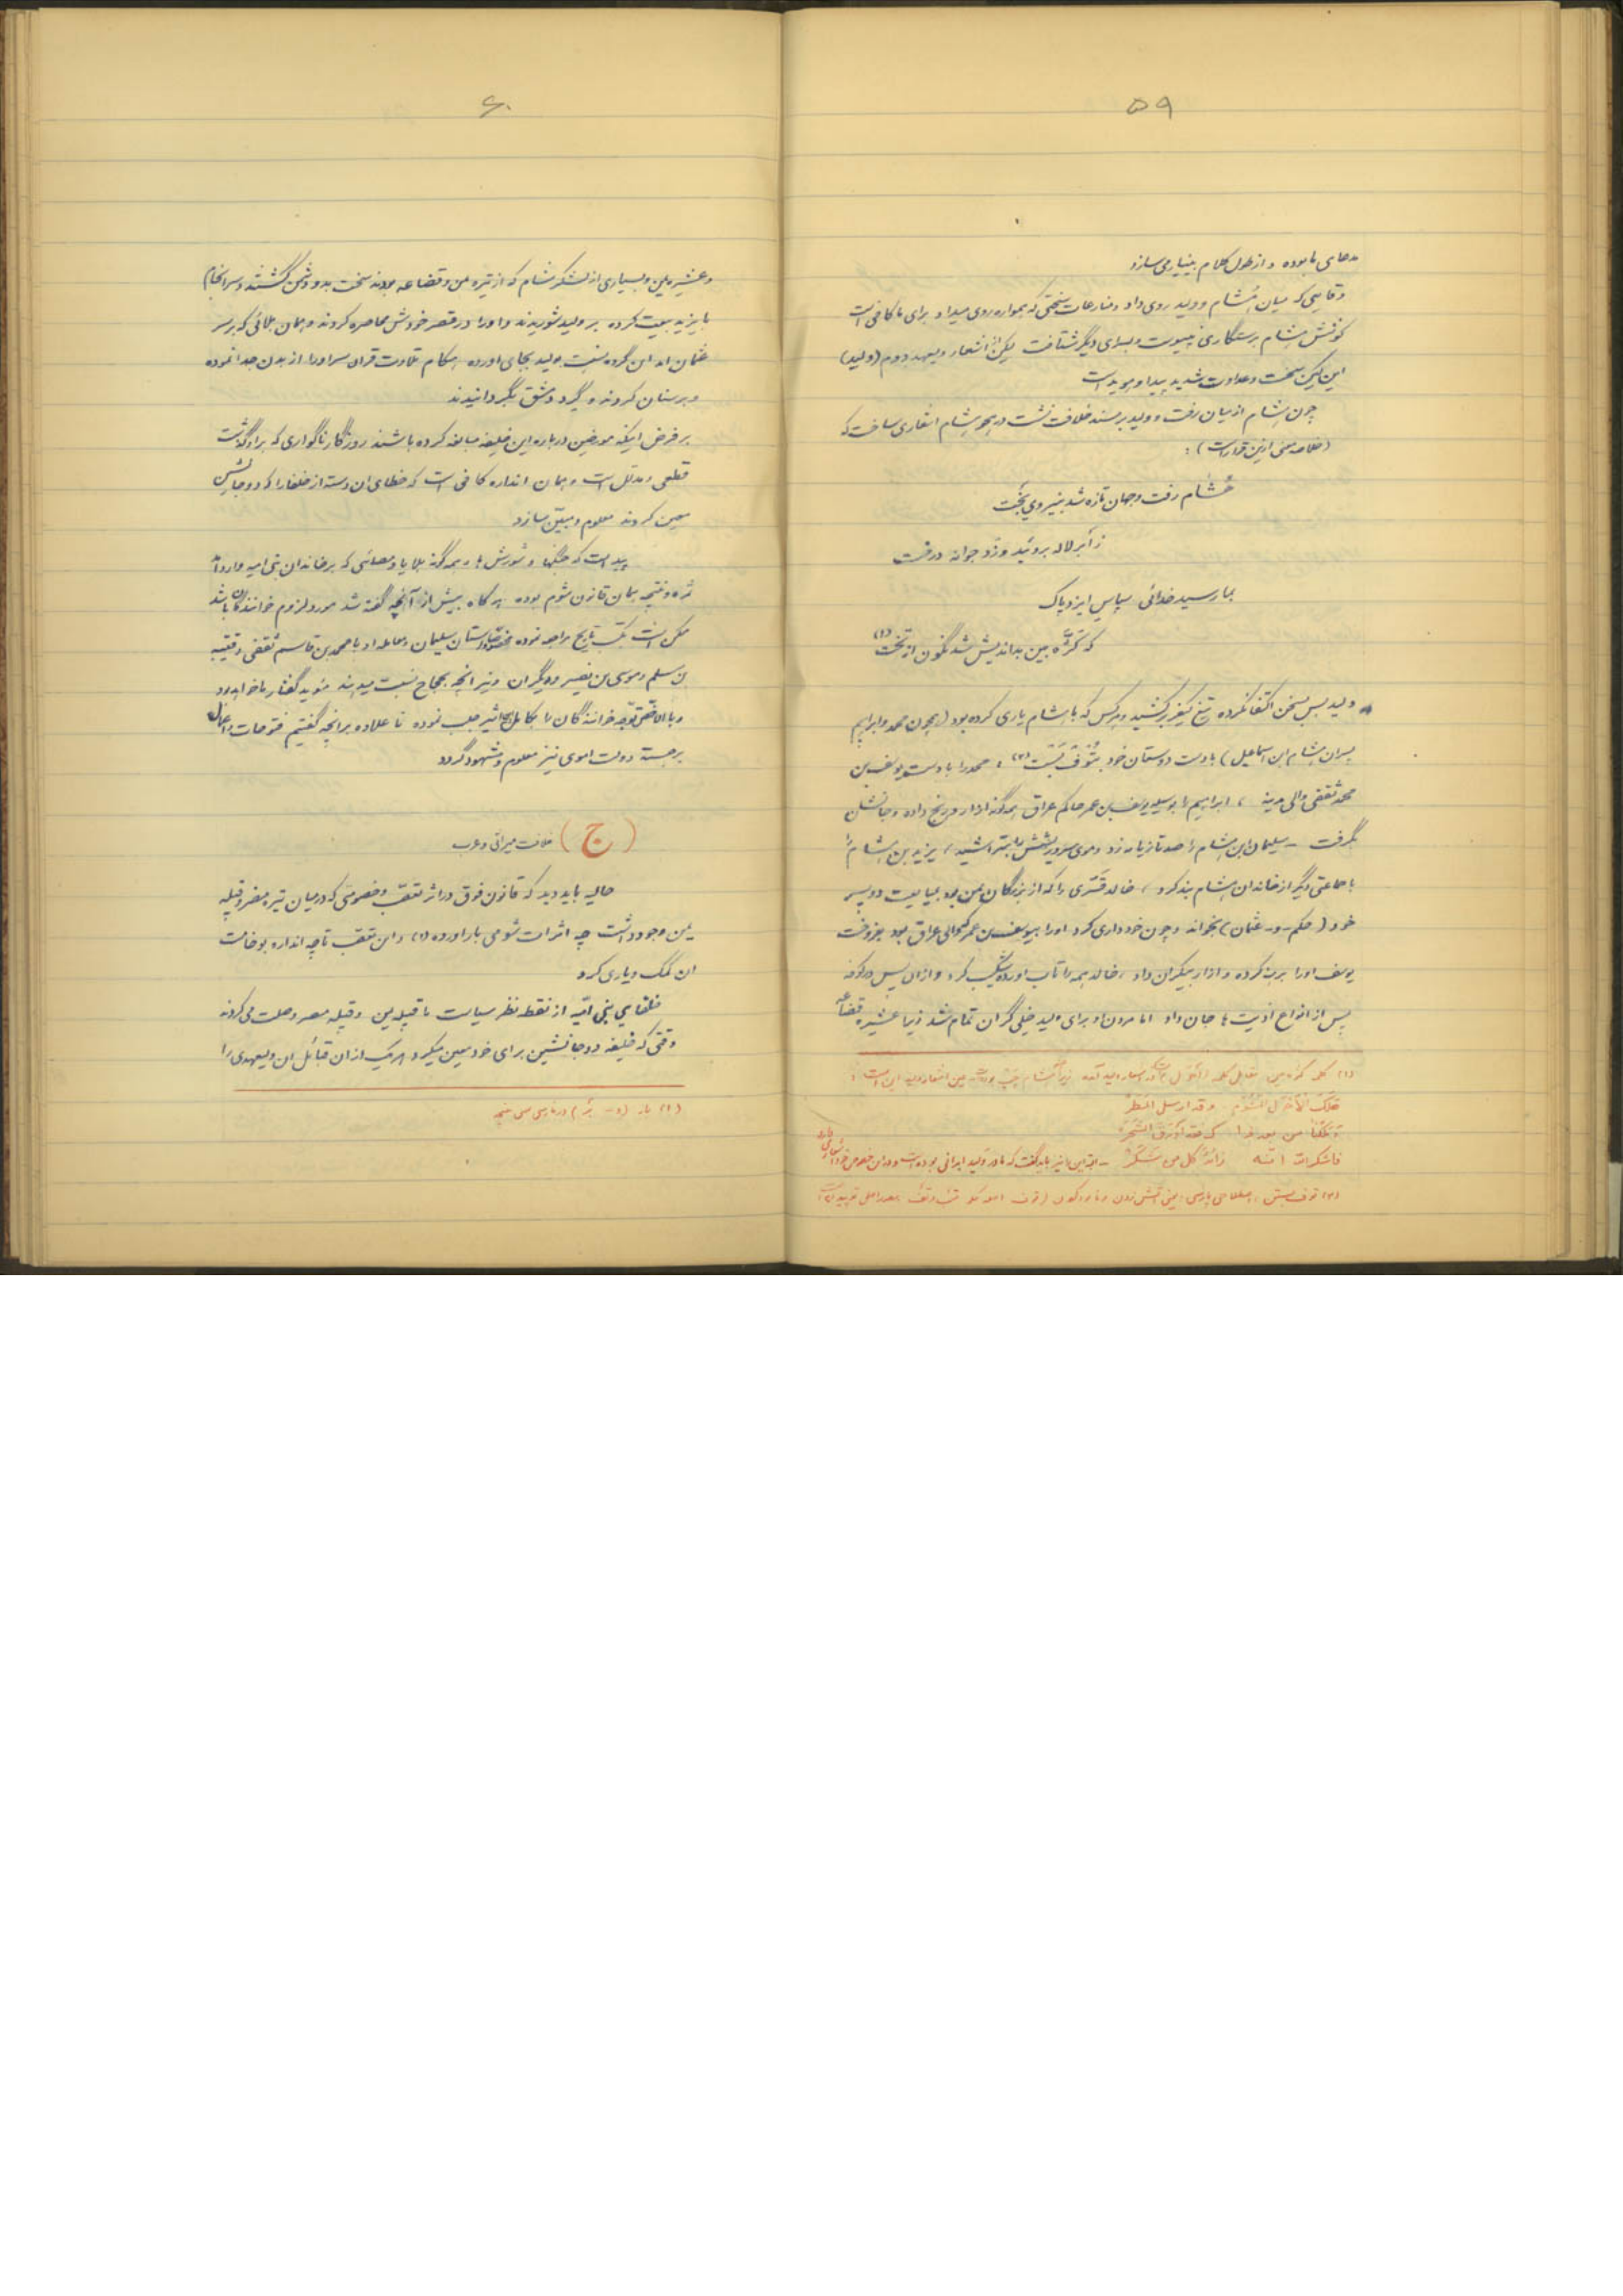 ۵۹
مدعای ما بوده و از طول کلام بینیاز می سازد
وقایعی که میان هشام و ولید روی داد و منازعات سختی که همواره روی میداد برای ما کافی است
کوشش هشام برستگاری نپیوست و بسرای دیگر شتافت لیکن از اشعار ولیعهد دوم (ولید)
این کین سخت و عداوت شدید پیدا و هویداست
چون هشام از میان رفت و ولید بر مسند خلافت نشست در هجو هشام اشعاری ساخت که
(خلاصه معنی ازین قرار است) :
هشام رفت و جهان تازه شد بنیروی بخت
ز ابر لاله بروئید و زد جوانه درخت
بما رسید خدائی سپاس ایزد پاک
که کژه بین بداندیش شد نگون از تخت (۱)
ولید بس بسخن اکتفا نکرده تیغ کیفر برکشید و هرکس که با هشام یاری کرده بود (همچون محمد و ابراهیم
پسران هشام ابن اسماعیل) بادست دوستان خود بتوف بست (۲) ، محمد را بادست یوسف بن
محمد ثقفی والی مدینه ، ابراهیم را بوسیله یوسف بن عمر حاکم عراق همه گونه ازار و رنج داده و جانشان
گرفت - سلیمان ابن هشام را صد تازیانه زد و موی سر و ریشش را بتراشید ، یزید بن هشام را
با جماعتی دیگر از خاندان هشام بند کرد ، خالد قسری را که از بزرگان یمن بود بمبایعت دو پسر
خود (حکم - و - عثمان) بخواند و چون خودداری کرد او را بیوسف بن عمر که والی عراق بود بفروخت
یوسف او را برهنه کرده و ازار بیکران داد ، خالد همه را تاب اورده شکیب کرد و ازان پس در کوفه
پس از انواع اذیت ها جان داد اما مردن او برای ولید خیلی گران تمام شد زیرا عشیره قضاعه
(۱) کلمه کژه بین مقابل کلمه (احول) است در اشعار ولید آمده زیرا هشام چپ بود عین اشعار ولید این است :
هلک الأحول المشؤم وقد ارسل المطر
من بعد ذا فقد اورق الشجر
فاشکر الله انه زائد کل من شکر - این را نیز باید گفت که مادر ولید ایرانی بوده است و در این خصوص خود اشعاری دارد
(۲) توف بستن ، اصطلاحی پارسی
۶۰
و عشیره یمن و بسیاری از لشکر شام که از تیره یمن و قضاعه بودند سخت بدو دشمن گشتند و سرانجام
با یزید بیعت کرده بر ولید شوریدند و او را در قصر خودش محاصره کردند و همان بلائی که بر سر
عثمان امد این گروه نسبت بولید بجای اورده هنگام تلاوت قران سر او را از بدن جدا نموده
و بر سنان کردند و گرد دمشق بگردانیدند
بر فرض اینکه مورخین درباره این خلیفه مبالغه کرده باشند روزگار ناگواری که بر او گذشت
قطعی و مدلل است و همان اندازه کافی است که خطای ان دسته از خلفا را که دو جانشین
معین کردند معلوم و مبین سازد
پیداست که جنگها و شورش ها و همه گونه بلایا و مصائبی که بر خاندان بنی امیه وارد آمد
ثمره و نتیجه همان قانون شوم بوده هر گاه بیش از آنچه گفته شد مورد لزوم خوانندگان باشد
ممکن است بکتب تاریخ مراجعه نموده مخصوصا داستان سلیمان و معامله او با محمد بن قاسم ثقفی و قتیبه
بن مسلم و موسی بن نصیر و دیگران و نیز انچه بحجاج نسبت میدهند مؤید گفتار ما خواهد بود
و بالاخص توجه خوانندگان را بکامل ابن اثیر جلب نموده تا علاوه بر انچه گفتیم فتوحات و اعمال
برجسته دولت اموی نیز معلوم و مشهود گردد
(ج) خلافت میراثی و عرب
حالیه باید دید که قانون فوق در اثر تعصب و خصومتی که در میان تیره مضر و قبیله
یمن وجود داشت چه اثرات شومی بار اورده (۱) و این تعصب تا چه اندازه بوخامت
ان کمک و یاری کرد
خلفای بنی امیه از نقطه نظر سیاست با قبیله یمن و قبیله مضر وصلت می کردند
وقتی که خلیفه دو جانشین برای خود معین میکرد هر یک ازان قبائل ان ولیعهدی را